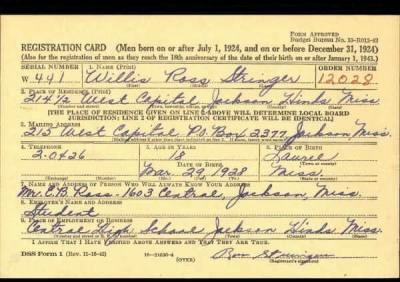 Form Approved
Budget Bureau No. 33-R012-42
REGISTRATION CARD (Men born on or after July 1, 1924, and on or before December 31, 1924)
(Also for the registration of men as they reach the 18th anniversary of the date of their birth on or after January 1, 1943.)
SERIAL NUMBER 1. NAME (Print) ORDER NUMBER
W 441 Willis Ross Stringer 12028
2. PLACE OF RESIDENCE (Print)
214½ West Capital Jackson Hinds Miss
[THE PLACE OF RESIDENCE GIVEN ON LINE 2 ABOVE WILL DETERMINE LOCAL BOARD
JURISDICTION; LINE 2 OF REGISTRATION CERTIFICATE WILL BE IDENTICAL]
3. MAILING ADDRESS
215 West Capital P.O. Box 2377 Jackson Miss.
4. TELEPHONE 5. AGE IN YEARS 6. PLACE OF BIRTH
2-0426 18 Laurel
DATE OF BIRTH
Mar. 29 1928 Miss.
7. NAME AND ADDRESS OF PERSON WHO WILL ALWAYS KNOW YOUR ADDRESS
Mr. C.B. Ross-1603 Central, Jackson, Miss.
8. EMPLOYER'S NAME AND ADDRESS
Student
9. PLACE OF EMPLOYMENT OR BUSINESS
Central High School Jackson Hinds Miss
I AFFIRM THAT I HAVE VERIFIED ABOVE ANSWERS AND THAT THEY ARE TRUE.
DSS Form 1 (Rev. 11-16-42) (OVER) Ross Stringer
(Registrant's signature)